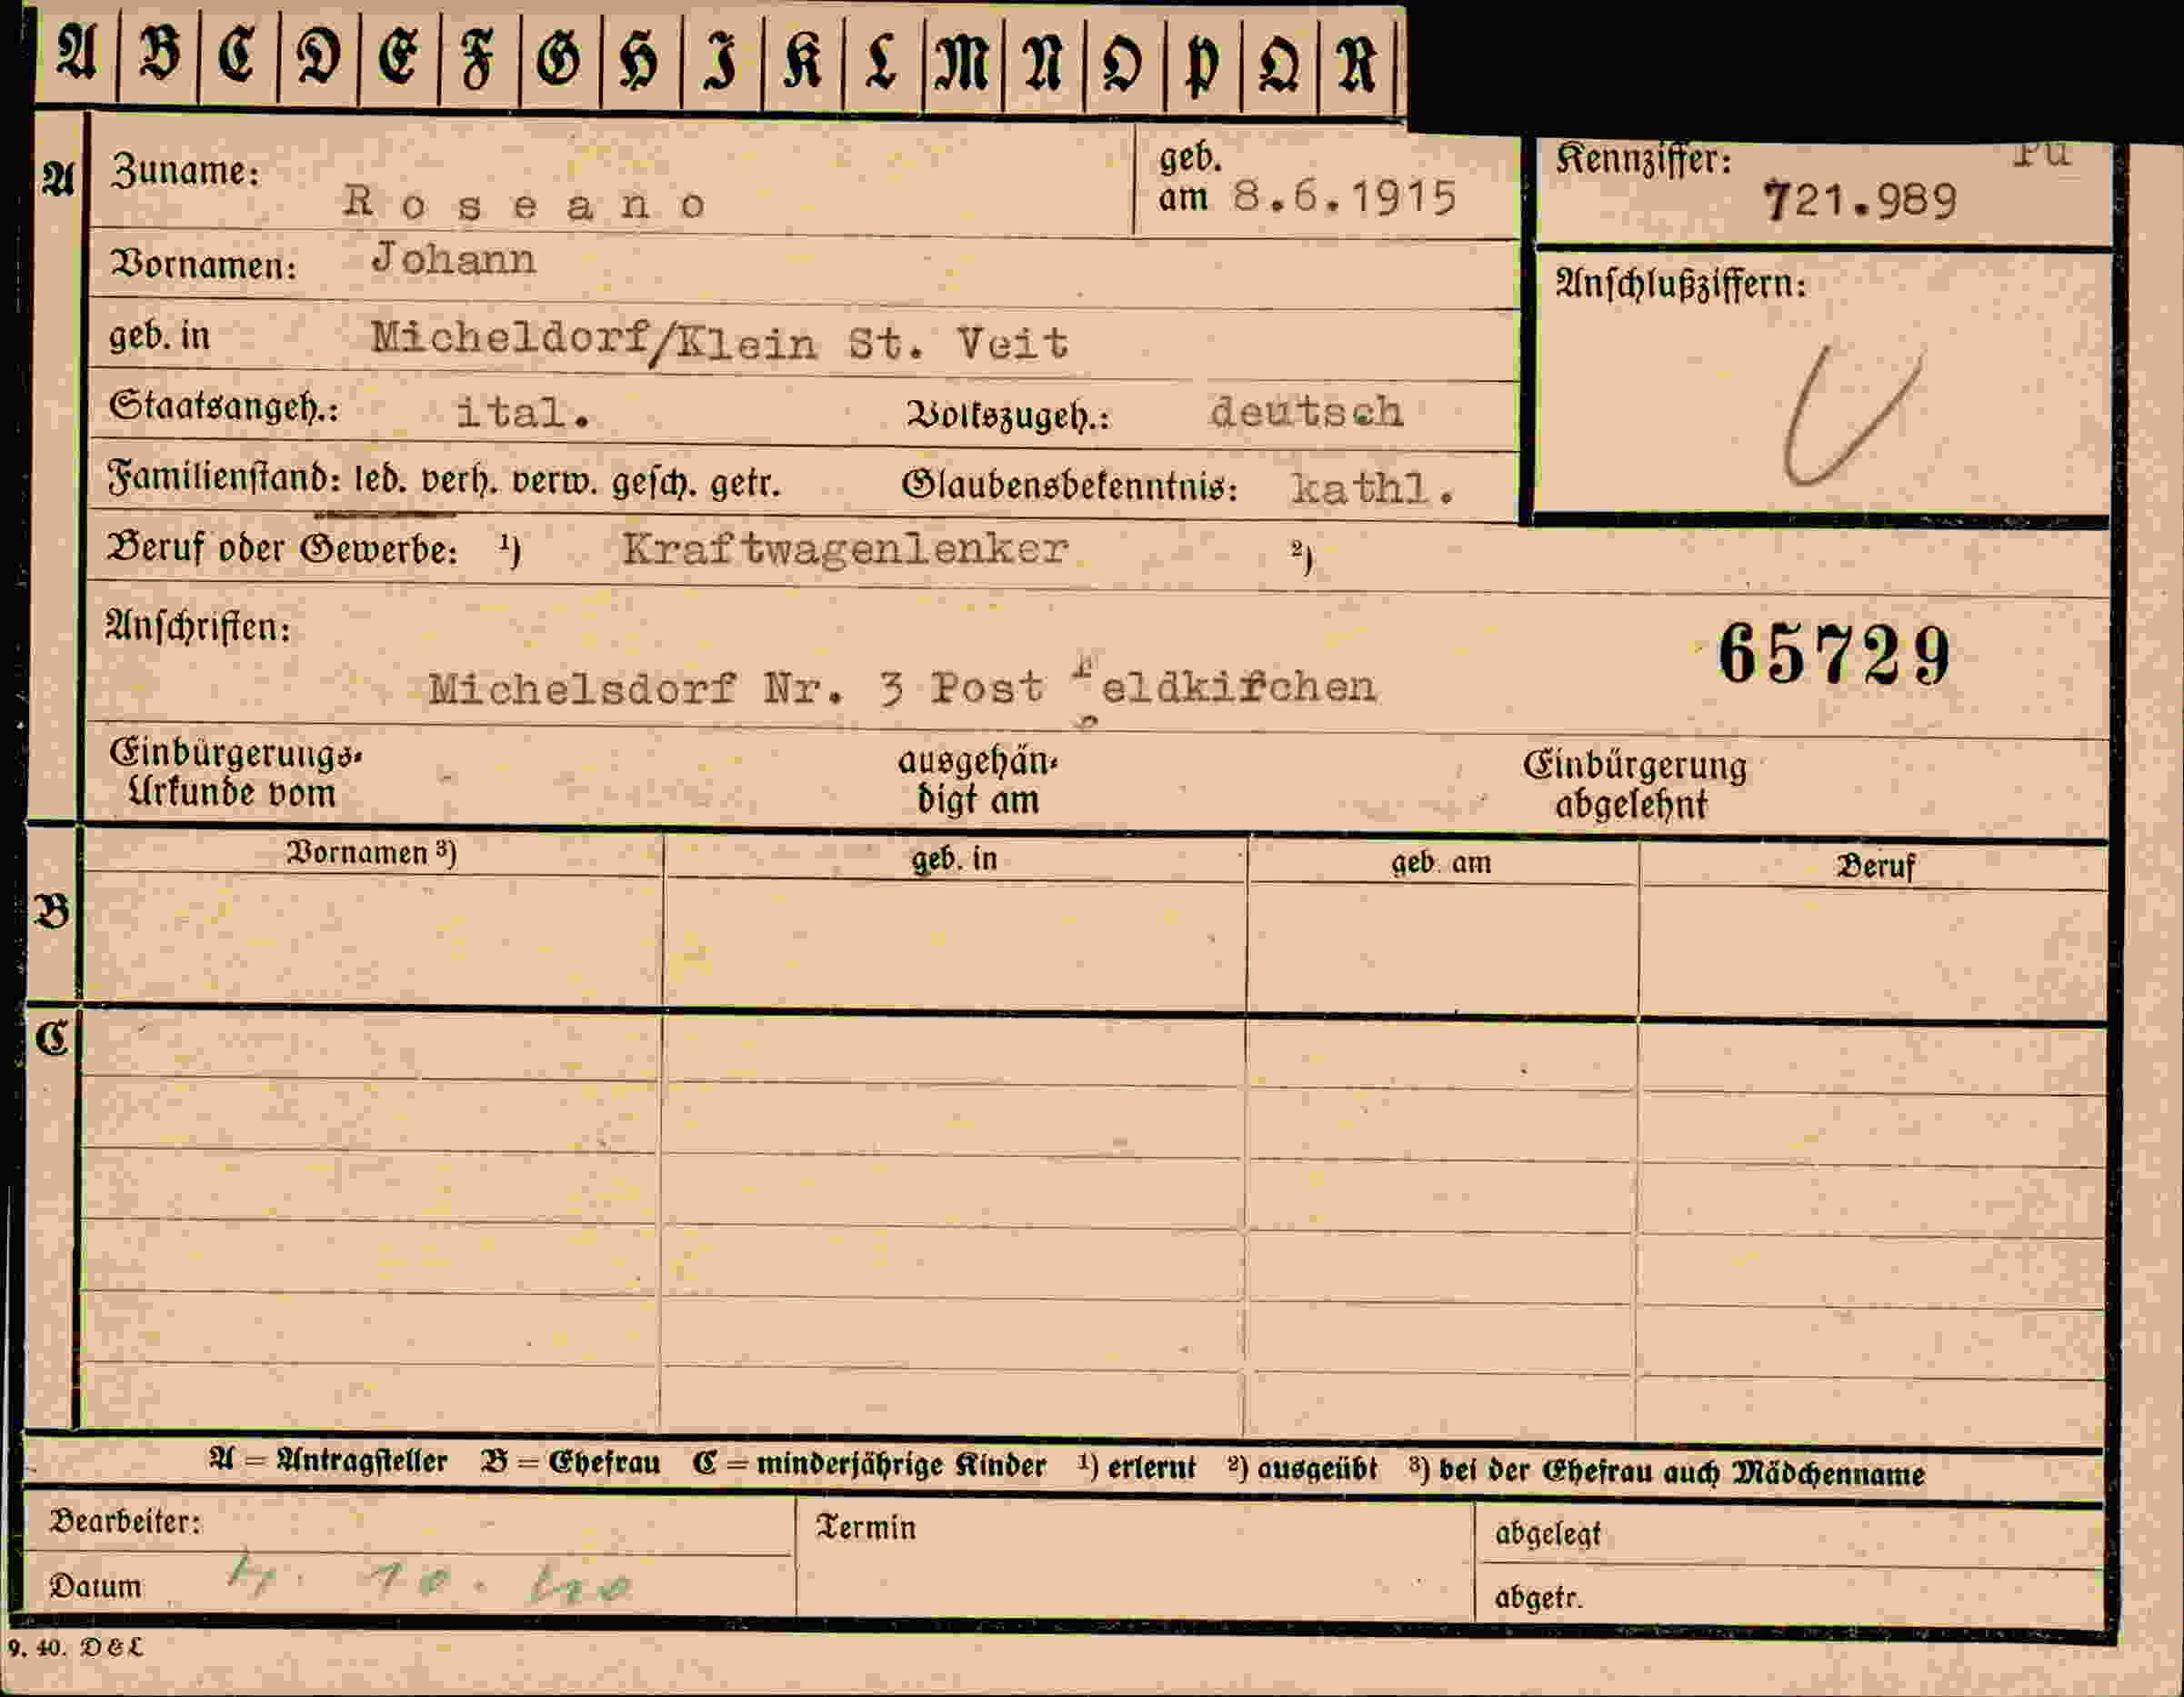 A B C D E F G H I K L M N O P Q R
A Zuname: Roseano geb. am 8.6.1915
Kennziffer: 721.989
Vornamen: Johann
Anschlußziffern:
geb. in Micheldorf/Klein St. Veit
Staatsangeh.: ital. Volkszugeh.: deutsch
Familienstand: led. verh. verw. gesch. getr. Glaubensbekenntnis: kathl.
Beruf oder Gewerbe: ¹) Kraftwagenlenker ²)
Anschriften:
65729
Michelsdorf Nr. 3 Post Feldkirchen
Einbürgerungs- ausgehän- Einbürgerung
Urkunde vom digt am abgelehnt
Vornamen ³) geb. in geb. am Beruf
B
C
A = Antragsteller B = Ehefrau C = minderjährige Kinder ¹) erlernt ²) ausgeübt ³) bei der Ehefrau auch Mädchenname
Bearbeiter: Termin abgelegt
Datum 4. 10. 40 abgetr.
9. 40. D&L